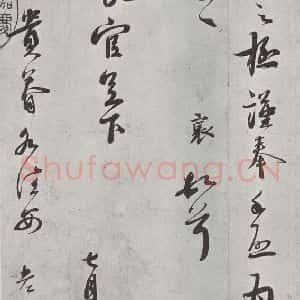 之極謹奉手啟為
襄頓首
官足下
七月
貴眷各佳安 老
Shufawang.CN